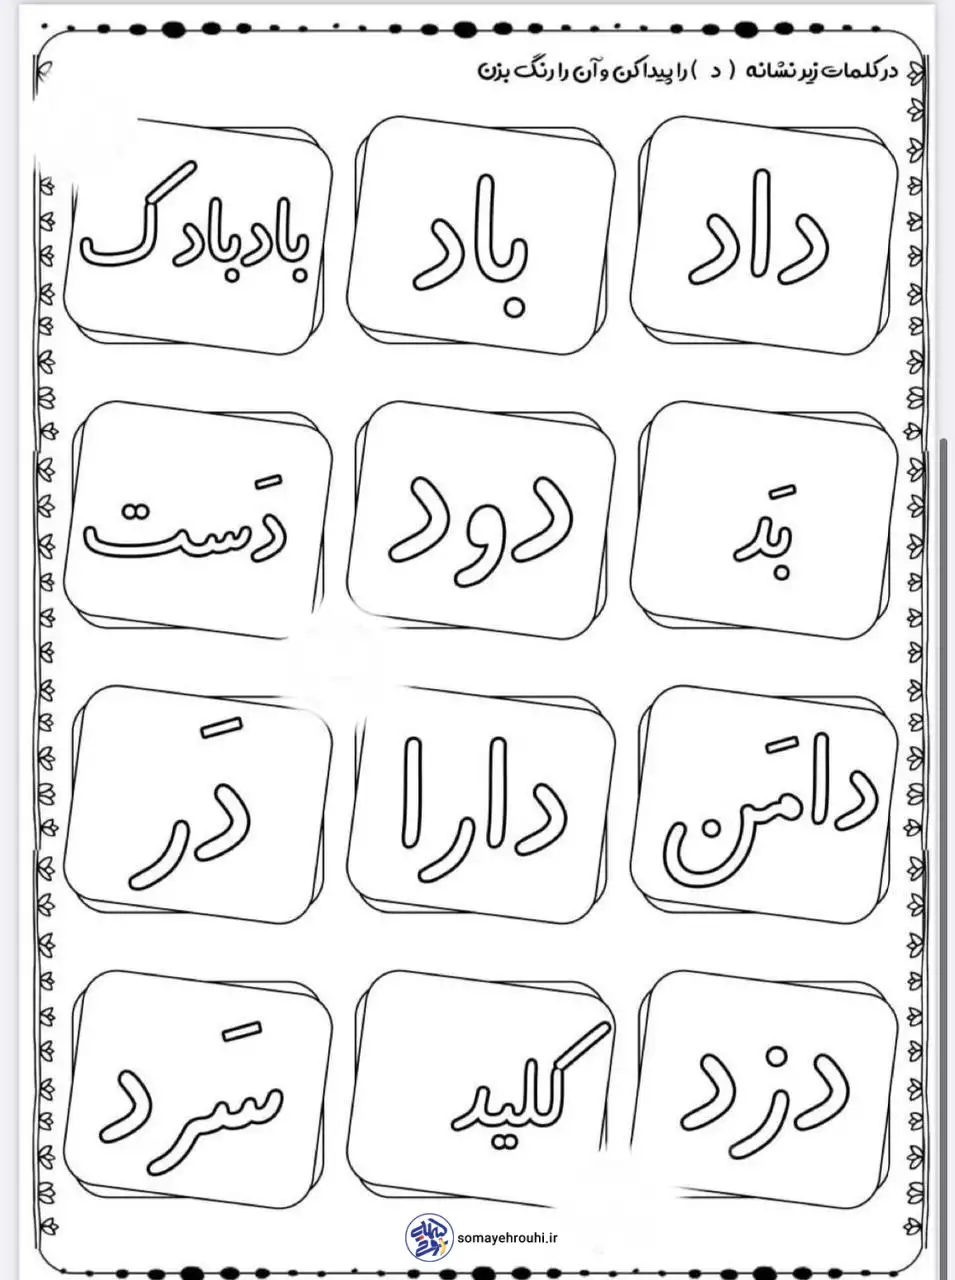 در کلمات زیر نشانه ( د ) را پیدا کن و آن را رنگ بزن
داد باد بادبادک
بَد دود دَست
دامَن دارا دَر
دزد کلید سَرد
somayehrouhi.ir